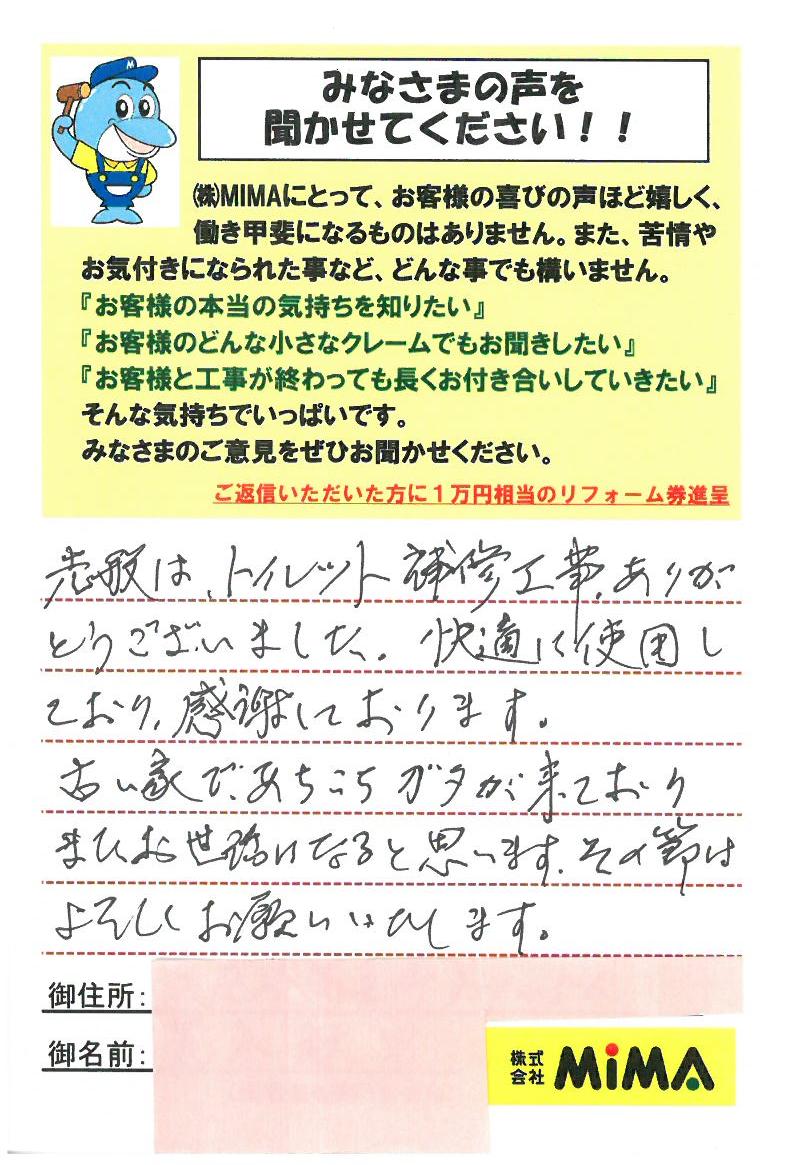 みなさまの声を
聞かせてください！！
㈱MIMAにとって、お客様の喜びの声ほど嬉しく、
働き甲斐になるものはありません。また、苦情や
お気付きになられた事など、どんな事でも構いません。
『お客様の本当の気持ちを知りたい』
『お客様のどんな小さなクレームでもお聞きしたい』
『お客様と工事が終わっても長くお付き合いしていきたい』
そんな気持ちでいっぱいです。
みなさまのご意見をぜひお聞かせください。
ご返信いただいた方に１万円相当のリフォーム券進呈
先般は、トイレット補修工事、ありが
とうございました。快適に使用し
ており、感謝しております。
古い家で、あちこちガタが来ており
またお世話になると思います。その節は
よろしくお願いいたします。
御住所：
御名前：
株式
会社 MiMA
M